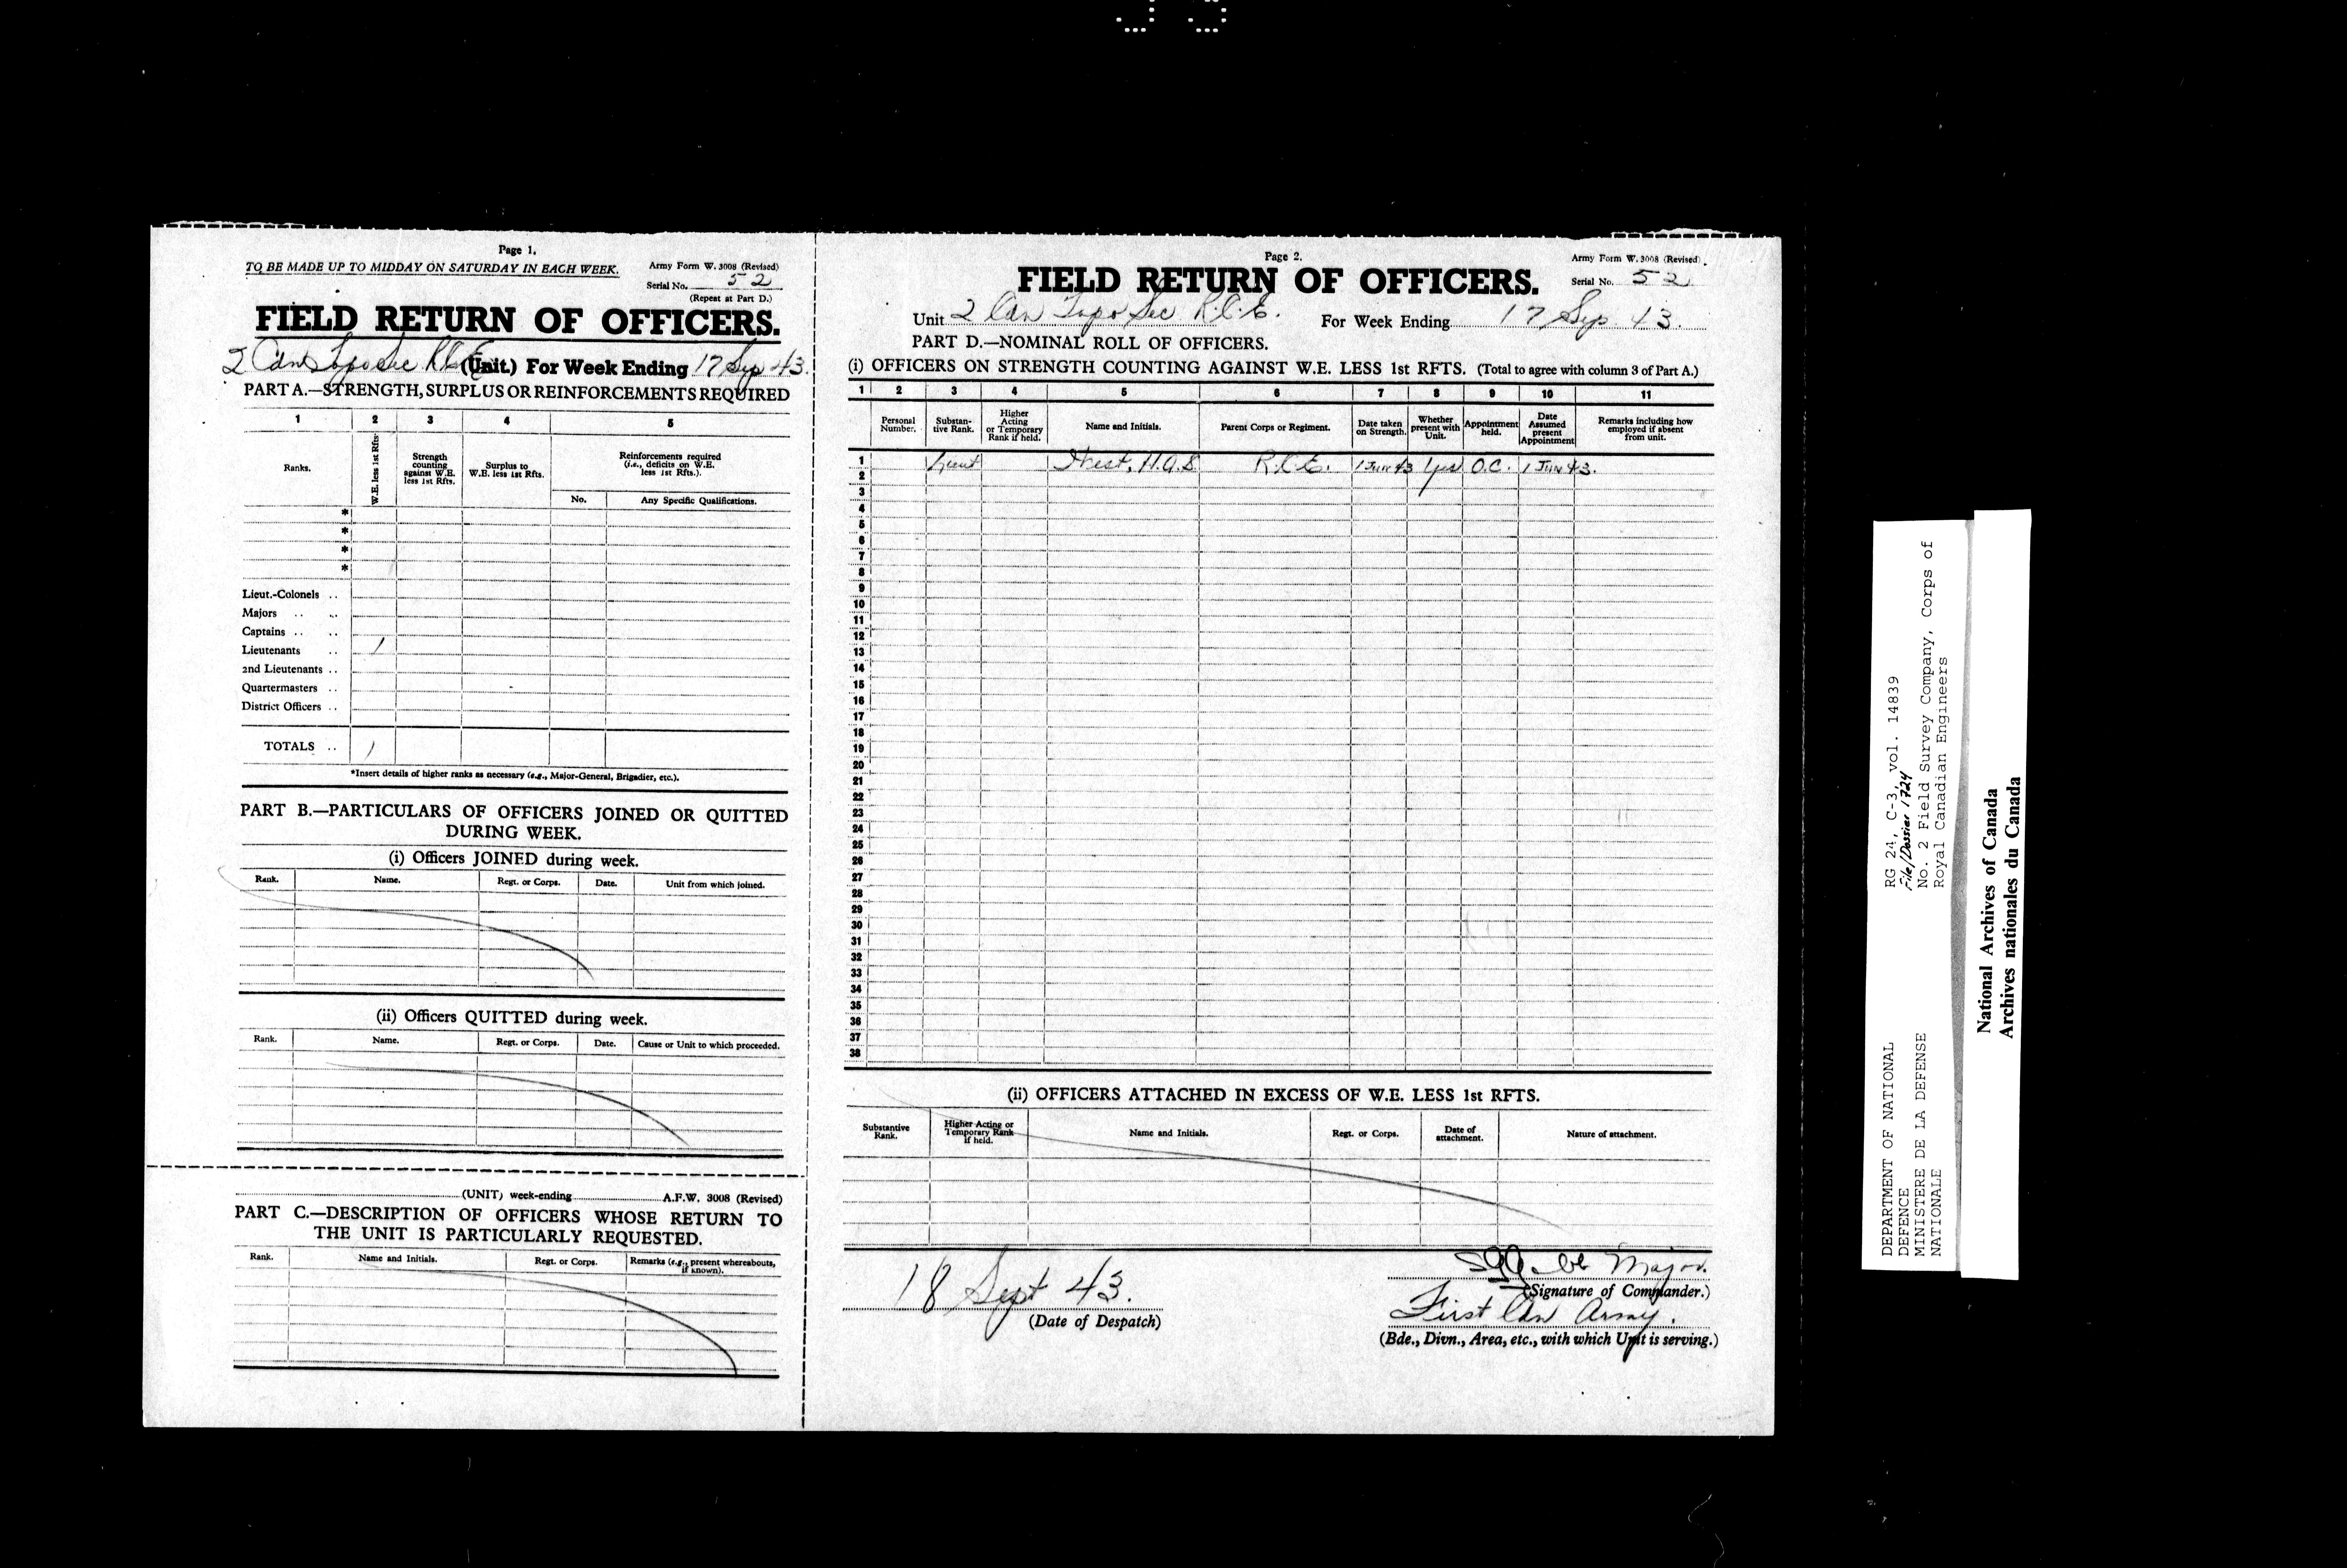 Page 1.
TO BE MADE UP TO MIDDAY ON SATURDAY IN EACH WEEK.
Army Form W. 3008 (Revised)
Serial No. 52
(Repeat at Part D.)
FIELD RETURN OF OFFICERS.
2 Can Topo Sec R.C.E. (Unit.) For Week Ending 17 Sep 43.
PART A.—STRENGTH, SURPLUS OR REINFORCEMENTS REQUIRED
1 2 3 4 5
Ranks.
W.E. less 1st Rfts.
Strength counting against W.E. less 1st Rfts.
Surplus to W.E. less 1st Rfts.
Reinforcements required (i.e., deficits on W.E. less 1st Rfts.).
No. Any Specific Qualifications.
*
*
*
*
Lieut.-Colonels ..
Majors .. ..
Captains .. ..
Lieutenants .. 1
2nd Lieutenants ..
Quartermasters ..
District Officers ..
TOTALS .. 1
*Insert details of higher ranks as necessary (e.g., Major-General, Brigadier, etc.).
PART B.—PARTICULARS OF OFFICERS JOINED OR QUITTED
DURING WEEK.
(i) Officers JOINED during week.
Rank. Name. Regt. or Corps. Date. Unit from which joined.
(ii) Officers QUITTED during week.
Rank. Name. Regt. or Corps. Date. Cause or Unit to which proceeded.
(UNIT) week-ending A.F.W. 3008 (Revised)
PART C.—DESCRIPTION OF OFFICERS WHOSE RETURN TO
THE UNIT IS PARTICULARLY REQUESTED.
Rank. Name and Initials. Regt. or Corps. Remarks (e.g., present whereabouts, if known).
Page 2.
Army Form W. 3008 (Revised).
FIELD RETURN OF OFFICERS.
Serial No. 52
Unit 2 Can Topo Sec R.C.E. For Week Ending 17 Sep 43.
PART D.—NOMINAL ROLL OF OFFICERS.
(i) OFFICERS ON STRENGTH COUNTING AGAINST W.E. LESS 1st RFTS. (Total to agree with column 3 of Part A.)
1 2 3 4 5 6 7 8 9 10 11
Personal Number.
Substantive Rank.
Higher Acting or Temporary Rank if held.
Name and Initials.
Parent Corps or Regiment.
Date taken on Strength.
Whether present with Unit.
Appointment held.
Date Assumed present Appointment
Remarks including how employed if absent from unit.
1 Lieut H.A.S. R.C.E. 1 Jun 43 Yes O.C. 1 Jun 43.
2
3
4
5
6
7
8
9
10
11
12
13
14
15
16
17
18
19
20
21
22
23
24
25
26
27
28
29
30
31
32
33
34
35
36
37
38
(ii) OFFICERS ATTACHED IN EXCESS OF W.E. LESS 1st RFTS.
Substantive Rank. Higher Acting or Temporary Rank if held. Name and Initials. Regt. or Corps. Date of attachment. Nature of attachment.
18 Sept 43.
(Date of Despatch)
Major.
(Signature of Commander.)
First Can Army.
(Bde., Divn., Area, etc., with which Unit is serving.)
DEPARTMENT OF NATIONAL
DEFENCE
MINISTERE DE LA DEFENSE
NATIONALE
RG 24, C-3, vol. 14839
File/Dossier 1724
No. 2 Field Survey Company, Corps of
Royal Canadian Engineers
National Archives of Canada
Archives nationales du Canada